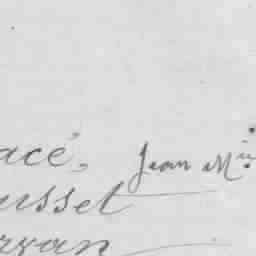 acé, Jean Mie
usset
rvan